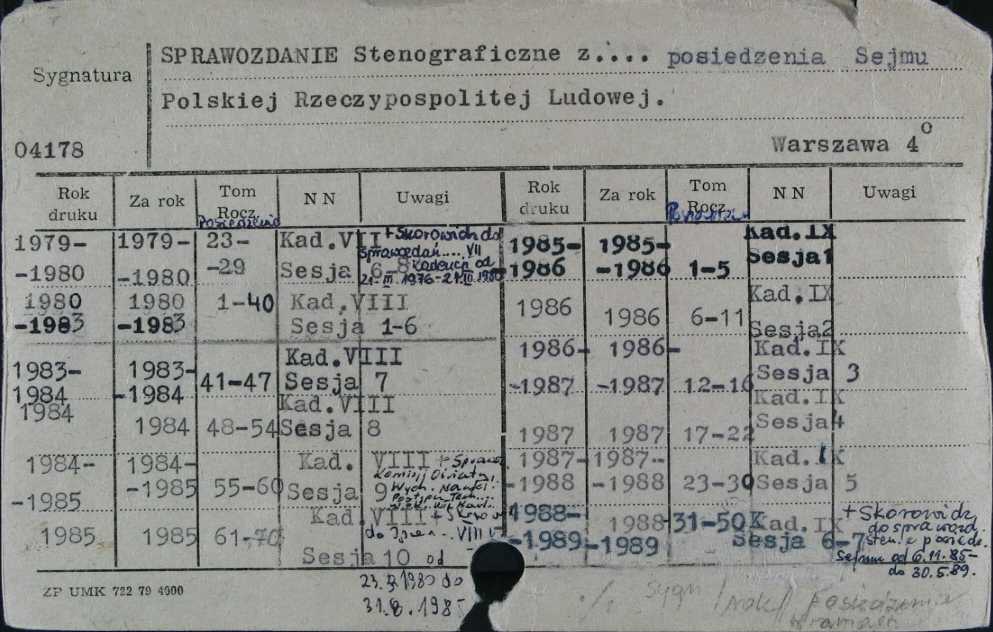 SPRAWOZDANIE Stenograficzne z.... posiedzenia Sejmu
Sygnatura
Polskiej Rzeczypospolitej Ludowej.
04178
Warszawa 4o
Rok druku Za rok Tom Rocz. N N Uwagi Rok druku Za rok Tom Rocz. N N Uwagi
Posiedzenie
1979- 1979- 23- Kad.VII + Skorowidz do
sprawozdań.... VII
-1980 -1980 -29 Sesja 6-8 kadencja od
21.III.1976-21.III.1980
1980 1980 1-40 Kad.VIII
-1983 -1983 Sesja 1-6
1983- 1983- Kad.VIII
1984 -1984 41-47 Sesja 7
1984 1984 48-54 Kad.VIII
Sesja 8
1984- 1984- Kad. VIII +
-1985 -1985 55-60 Sesja 9
1985 1985 61-70 Kad.VIII +
do VIII
Sesja 10 od
do
31.8.1985
1985- 1985- Kad.IX
-1986 -1986 1-5 Sesja1
1986 1986 6-11 Kad.IX
Sesja2
1986- 1986- Kad.IX
-1987 -1987 12-16 Sesja 3
1987 1987 17-22 Kad.IX
Sesja4
1987- 1987- Kad.IX
-1988 -1988 23-30 Sesja 5
1988- 1988- 31-50 Kad.IX + Skorowidz
do sprawozd.
-1989 -1989 Sesja 6-7 sten. z posiedz.
Sejmu od 6.11.85-
do 30.5.89.
ZP UMK 722 79 4000
Sygn / rok / Posiedzenie